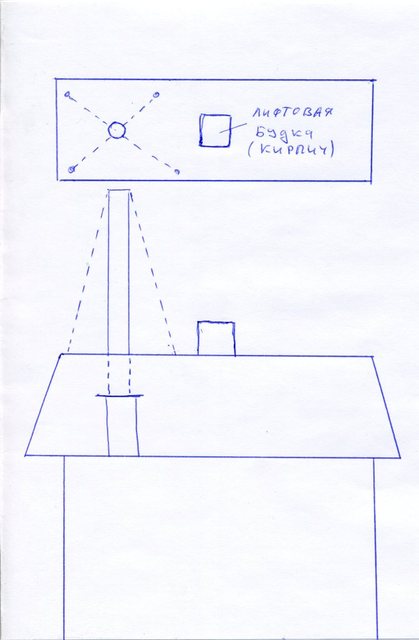 ЛИФТОВАЯ
БУДКА
(КИРПИЧ)